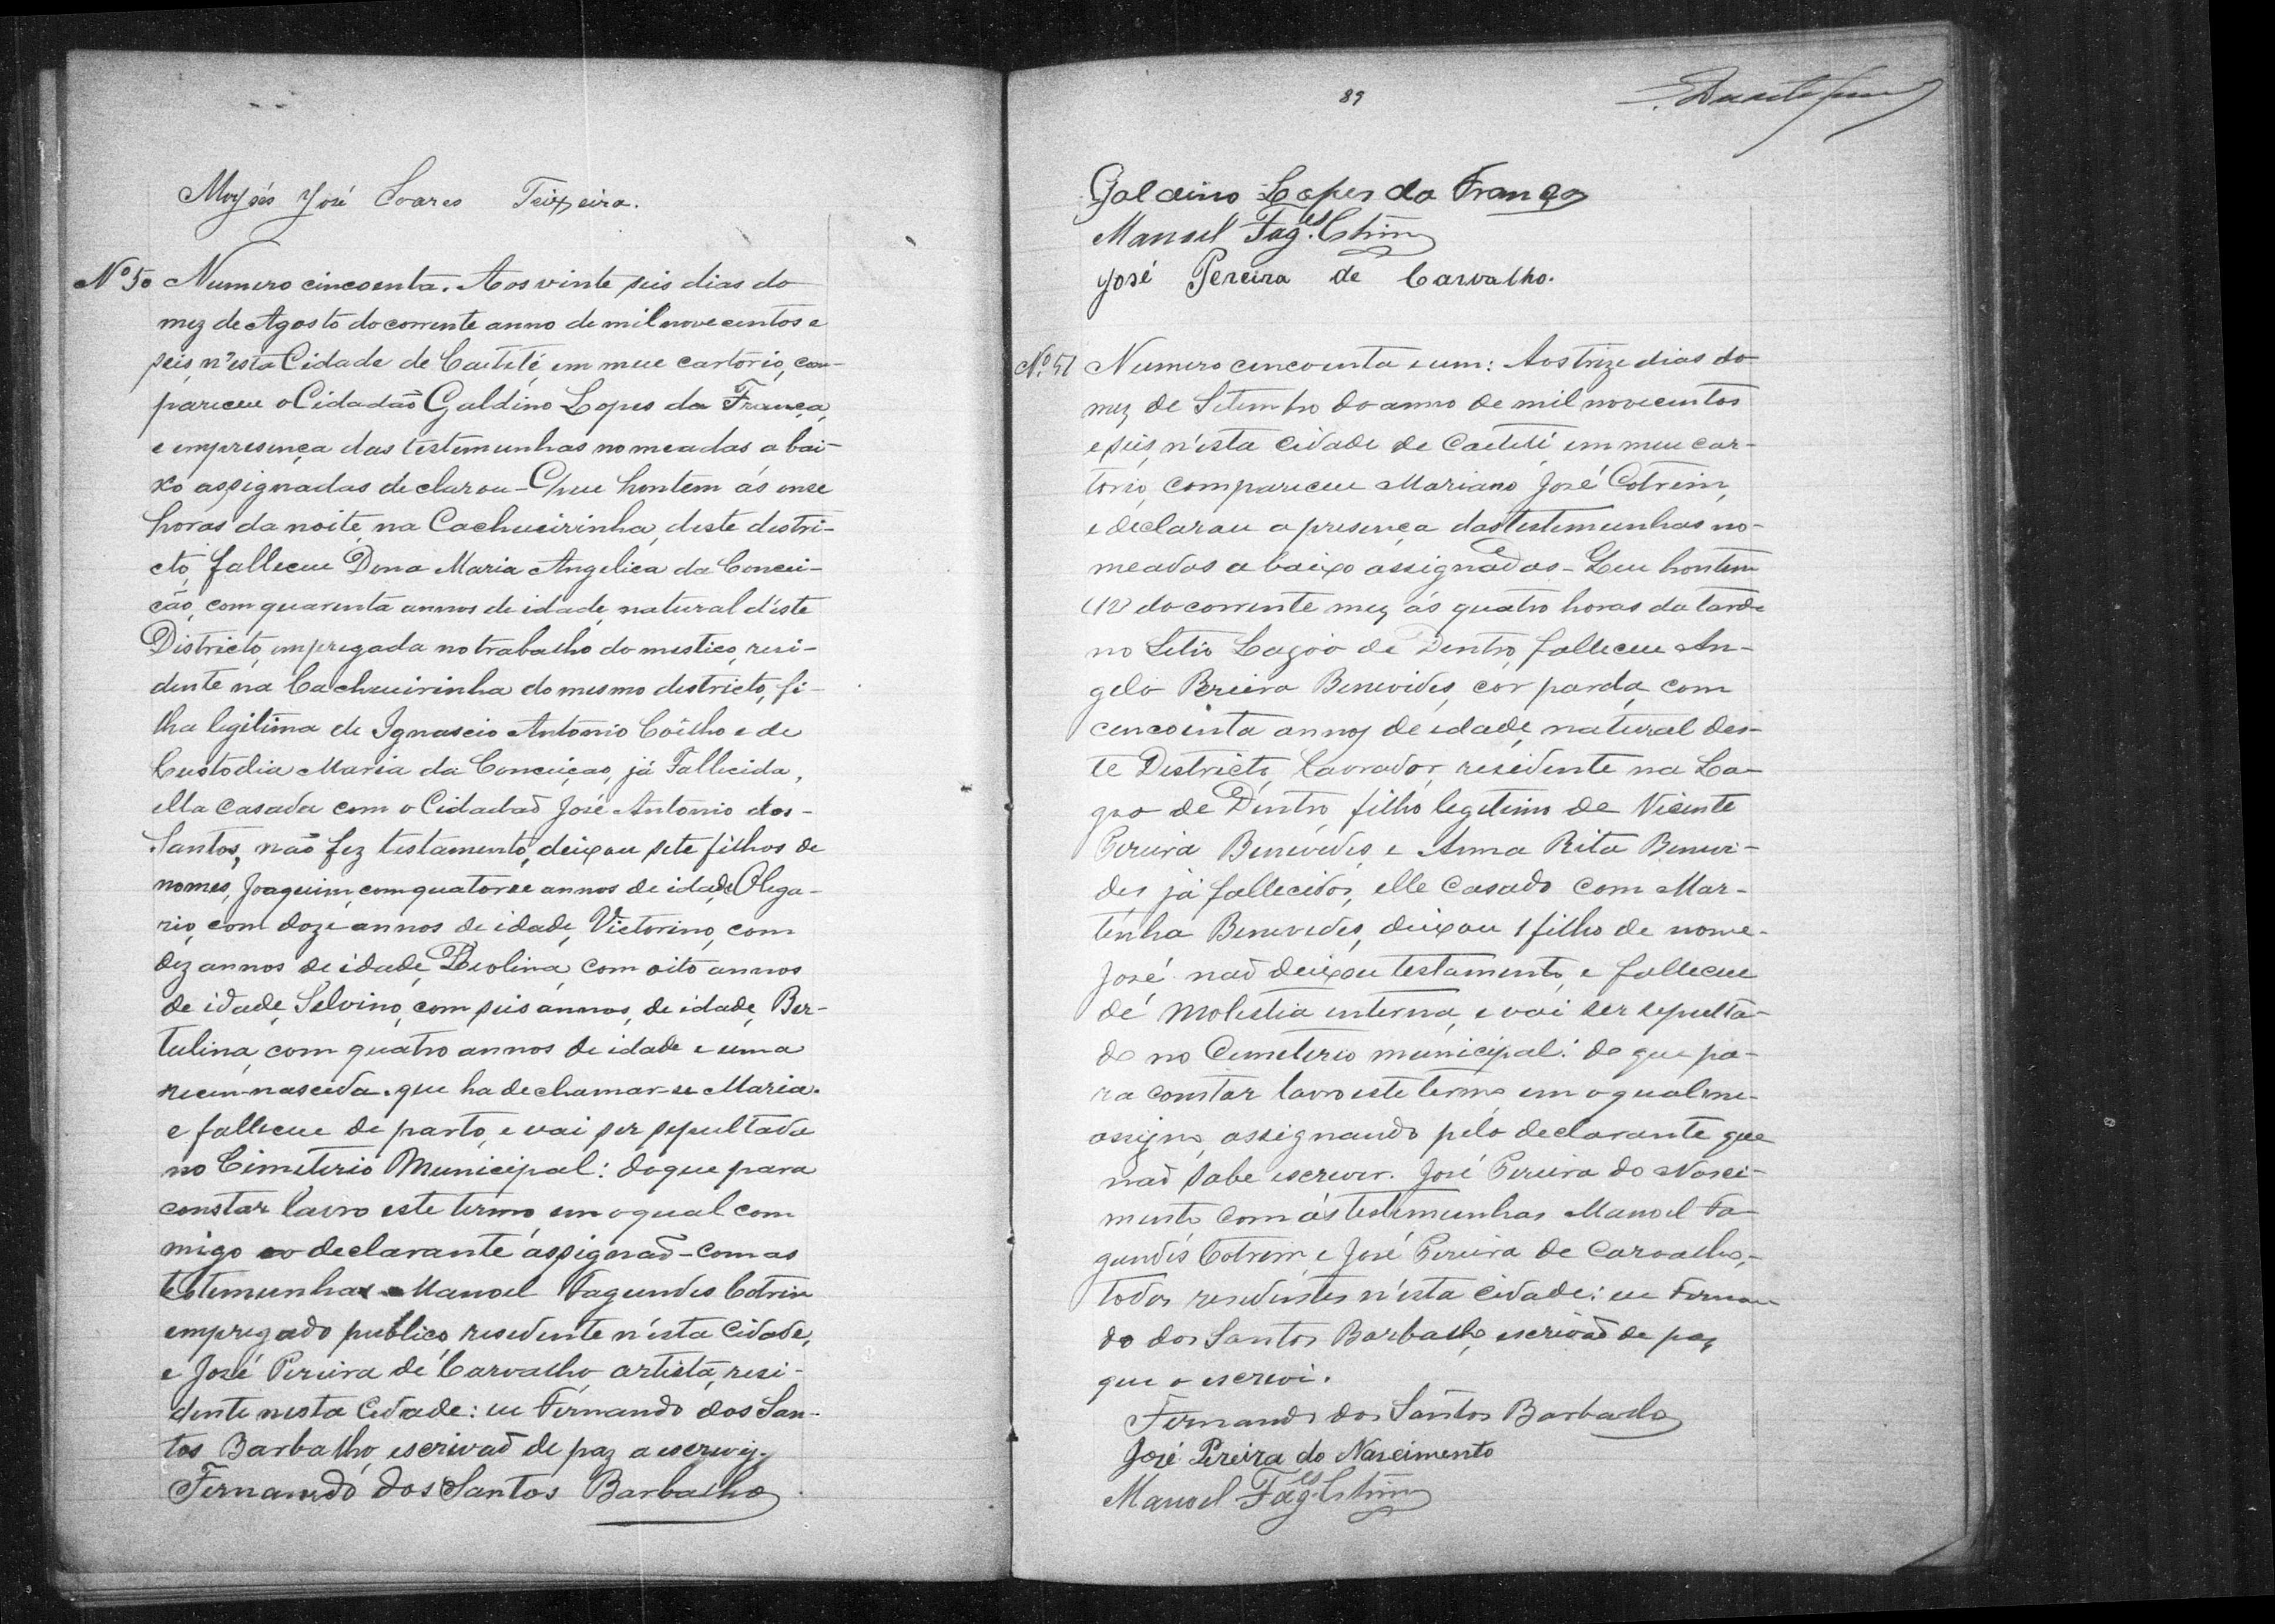 Moysés José Soares Teixeira.
Nº 50 Numero cincoenta. Aos vinte seis dias do
mez de Agosto do corrente anno de mil nove centos e
seis, n'esta Cidade de Caetité, em meu cartorio, com-
pareceu o Cidadão Galdino Lopes da França,
e em presença das testemunhas nomeadas a bai-
xo assignadas declarou - Que hontem ás onse
horas da noite, na Cachueirinha, deste distri-
cto, falleceu Dona Maria Angelica da Concei-
ção, com quarenta annos de idade, natural d'este
Districto, empregada no trabalho domestico, resi-
dente na Cachueirinha do mesmo districto, fi-
lha legitima de Ignascio Antonio Coêlho e de
Custodia Maria da Conceiçao, já Fallecida,
ella casada com o Cidadaõ José Antonio dos-
Santos, não fez testamento, deixou sete filhos de
nomes, Joaquim, com quatorse annos de idade, Olega-
rio, com doze annos de idade, Victorino, com
dez annos de idade, Deolina, com oito annos
de idade, Selvino, com seis annos, de idade, Ber-
tulina, com quatro annos de idade e uma
recem-nascida. que ha de chamar-se Maria.
e falleceu de parto, e vai ser sepultada
no Cimiterio Municipal: do que para
constar lavro este termo em o qual com
migo o declarante assignaõ - com as
testemunhas Manoel Fagundes Cotrin
empregado publico residente n'esta Cidade,
e José Pereira de Carvalho artista, resi-
dente nesta Cidade: eu Fernando dos San-
tos Barbalho, escrivaõ de paz a escrevy.
Fernando dos Santos Barbalho
89
Galdino Lopes da França
Manoel Fag.es Cotrim
José Pereira de Carvalho.
Nº 51 Numero cencoenta e um: Aos trize dias do
mez de Setembro do anno de mil novecentos
e seis, n'esta cidade de Caetité, em meu car-
torio, compareceu Mariano José Cotrim,
e declarou a presença das testemunhas no-
meadas abaixo assignadas - Que hontem
(12) do corrente mez ás quatro horas da tarde
no Sitio Lagôa de Dentro, falleceu An-
gelo Pereira Benevides, cor parda, com
cencoenta annos de idade, natural des-
te Districto, lavrador, residente na La-
goa de Dentro, filho legitimo de Vicente
Pereira Benevides, e Anna Rita Benevi-
des, já fallecidos, elle casado com Mar-
tinha Benevides, deixou 1 filho de nome-
José, naõ deixou testamento, e falleceu
de molestia interna, e vai ser sepulta-
do no Cemeterio municipal: do que pa-
ra constar lavro este termo em o qual me-
assigno, assignando pelo declarante que
naõ sabe escrever. José Pereira do Nasci-
mento com as testemunhas Manoel Fa-
gundes Cotrim, e José Pereira de Carvalho,-
todos residentes n'esta cidade: eu Fernan-
do dos Santos Barbalho, escrivaõ de paz
que o escrevi.
Fernando dos Santos Barbalho
José Pereira do Nascimento
Manoel Fag.es Cotrim